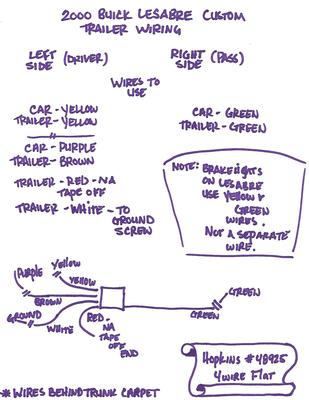 2000 BUICK LESABRE CUSTOM
TRAILER WIRING
LEFT SIDE (DRIVER)
RIGHT SIDE (PASS)
WIRES TO USE
CAR - YELLOW
TRAILER - YELLOW
CAR - PURPLE
TRAILER - BROWN
TRAILER - RED - NA
TAPE OFF
TRAILER - WHITE - TO
GROUND
SCREW
CAR - GREEN
TRAILER - GREEN
NOTE: BRAKELIGHTS
ON LESABRE
USE YELLOW &
GREEN
WIRES.
NOT A SEPARATE
WIRE.
PURPLE
YELLOW
YELLOW
BROWN
GROUND
WHITE
RED -
NA
TAPE
OFF
END
GREEN
GREEN
Hopkins #48925
4 WIRE FLAT
* WIRES BEHIND TRUNK CARPET